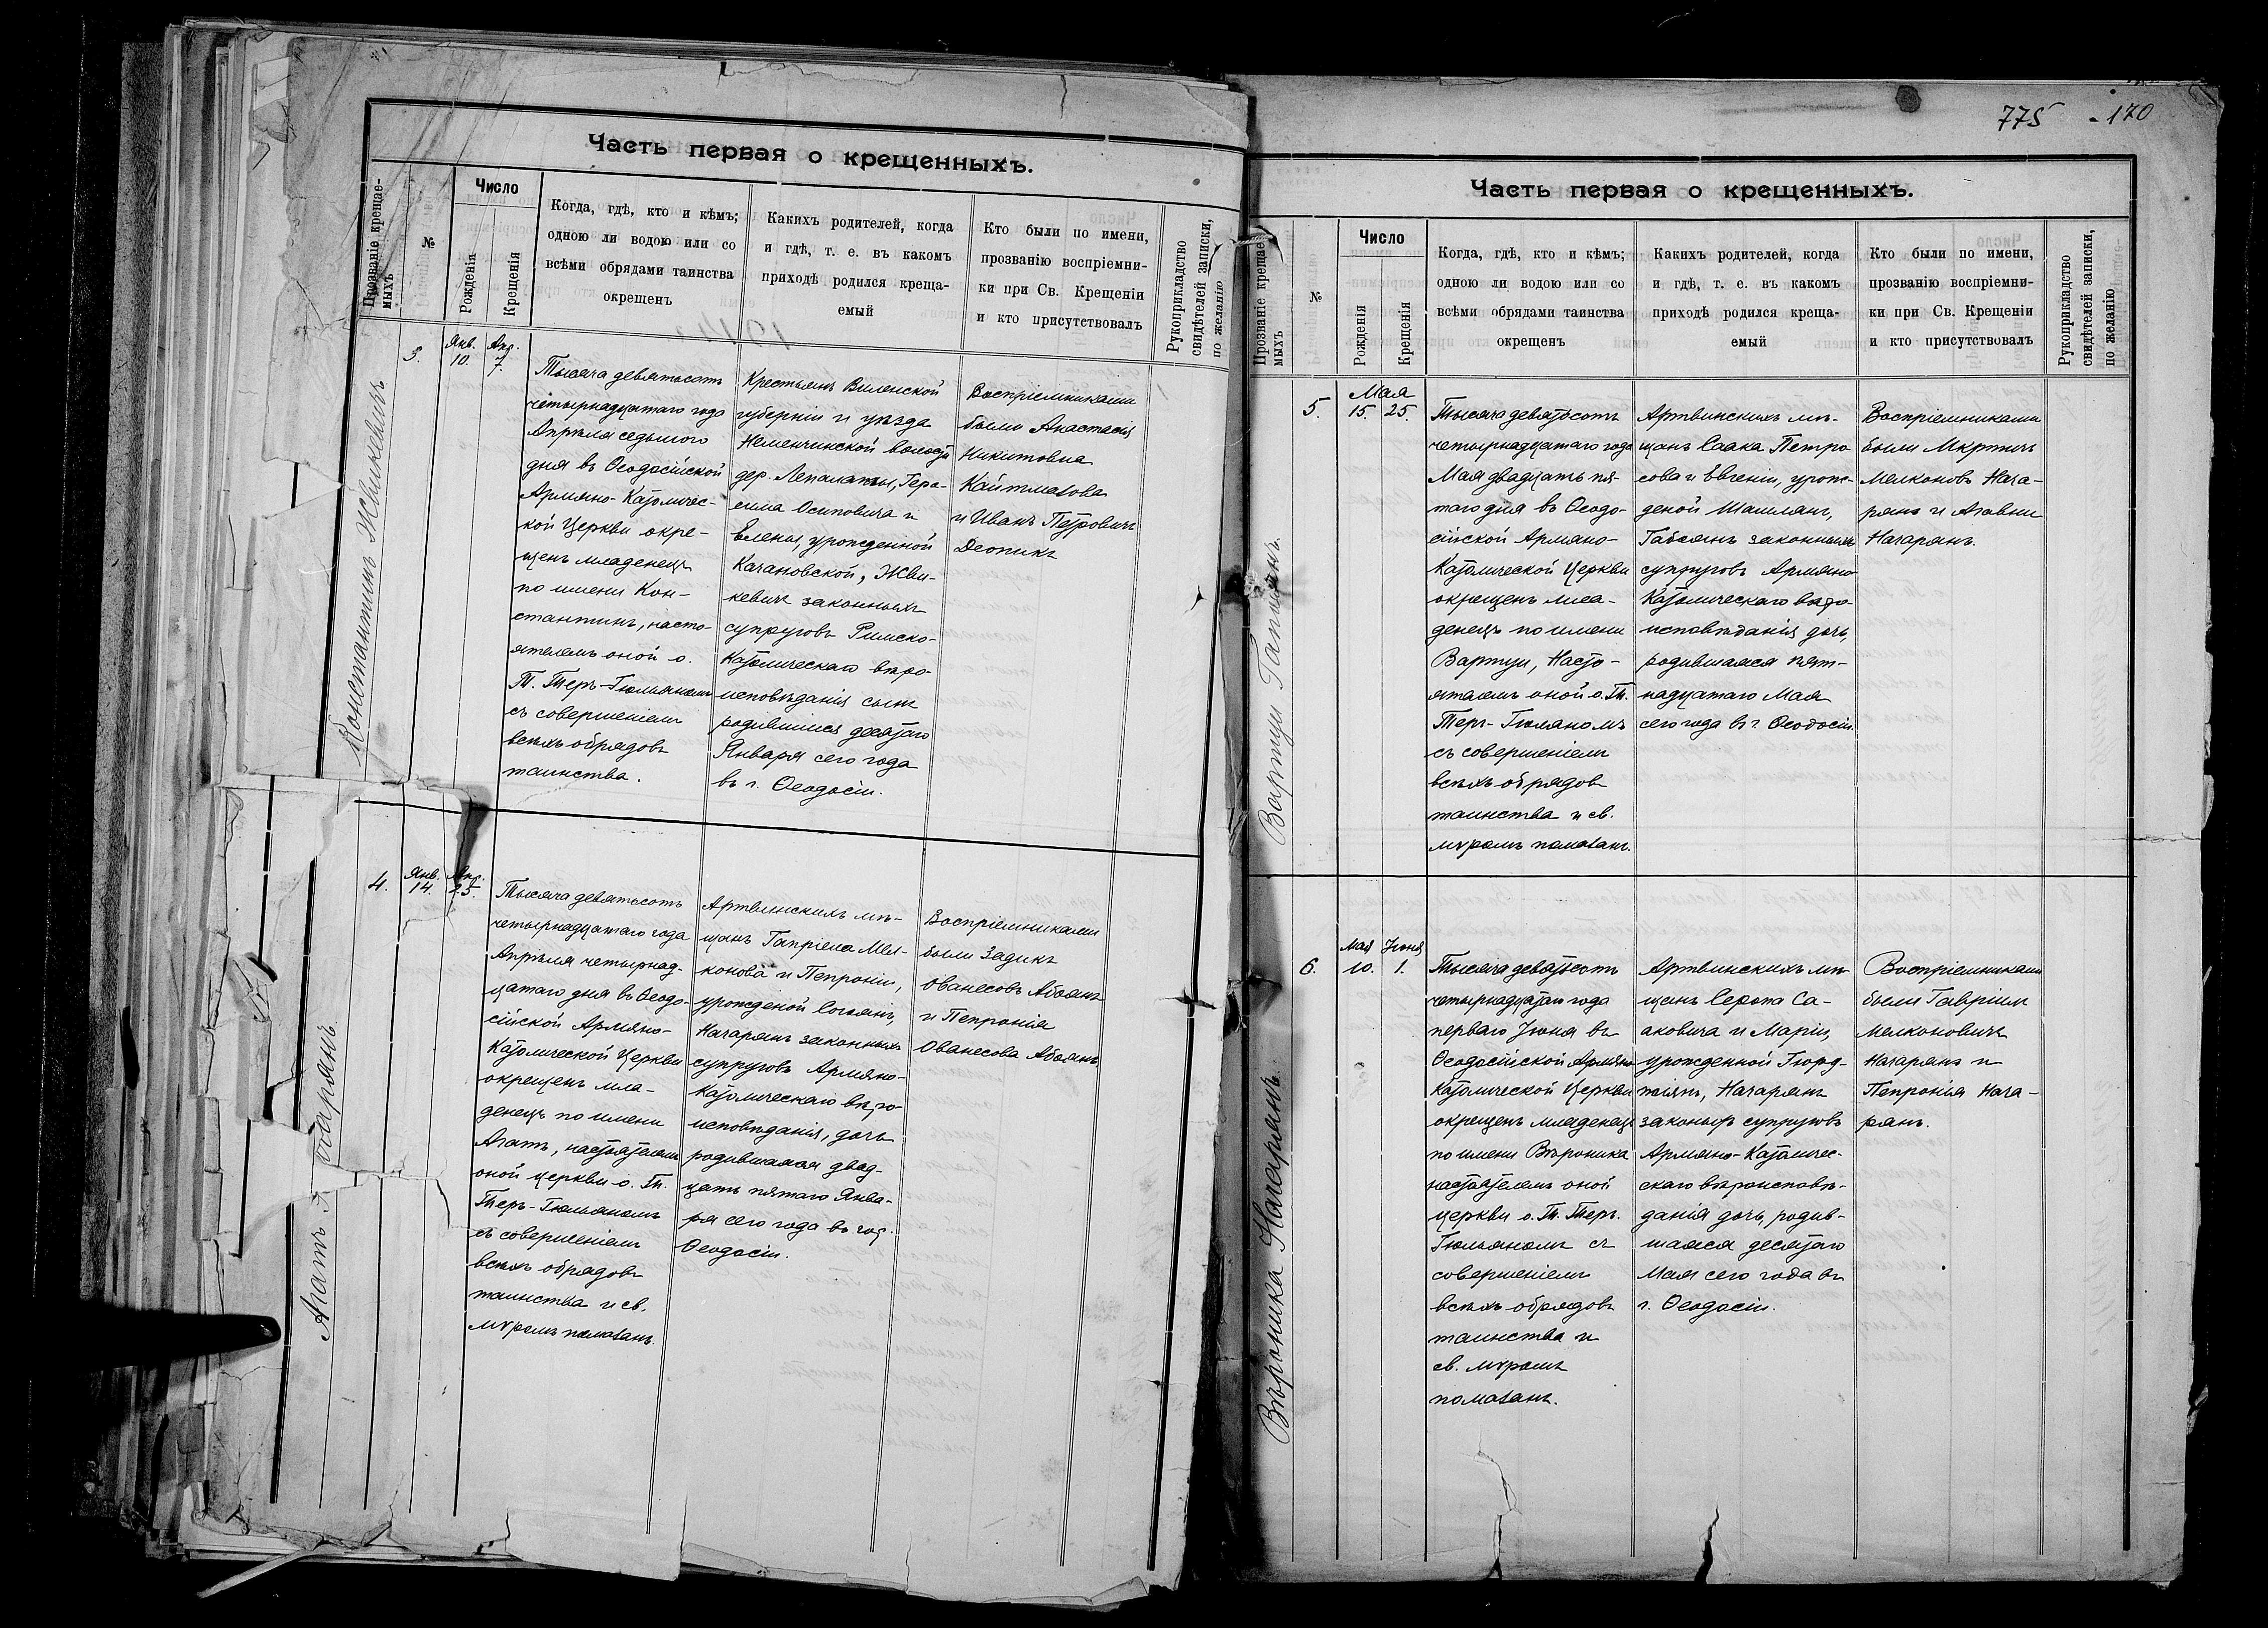 Часть первая о крещенныхъ.
Прозваніе крещае-
мыхъ
№
Число
Рожденія
Крещенія
Когда, гдѣ, кто и кѣмъ;
одною ли водою или со
всѣми обрядами таинства
окрещенъ
Какихъ родителей, когда
и гдѣ, т. е. въ какомъ
приходѣ родился креща-
емый
Кто были по имени,
прозванію воспріемни-
ки при Св. Крещеніи
и кто присутствовалъ
Рукоприкладство
свидѣтелей записки,
по желанію
Константинъ Жвикевичъ
3.
Янв.
10.
Апр.
7.
Тысяча девятьсотъ
четырнадцатаго года
Апрѣля седьмого
дня въ Ѳеодосійской
Армяно-Католичес-
кой Церкви окре-
щенъ младенецъ
по имени Кон-
стантинъ, насто-
ятелемъ оной о.
Т. Теръ-Гюльяномъ
съ совершеніемъ
всѣхъ обрядовъ
таинства.
Крестьянъ Виленской
губерніи и уѣзда
Неменчинской волости
дер. Лепалаты, Гера-
сима Осиповича и
Елены, урожденной
Качановской, Жви-
кевичъ законныхъ
супруговъ Римско-
Католическаго вѣро-
исповѣданія сынъ
родившійся десятаго
Января сего года
въ г. Ѳеодосіи.
Воспріемниками
были Анастасія
Никитовна
Кайтмазова
и Иванъ Петровичъ
Деопикъ
Агатъ
4.
Янв.
14.
Апр.
25.
Тысяча девятьсотъ
четырнадцатаго года
Апрѣля четырнад-
цатаго дня въ Ѳеодо-
сійской Армяно-
Католической Церкви
окрещенъ мла-
денецъ по имени
Агатъ, настоятелемъ
оной церкви о. Т.
Теръ-Гюльяномъ
съ совершеніемъ
всѣхъ обрядовъ
таинства и св.
мѵромъ помазанъ.
Артвинскихъ мѣ-
щанъ Гапріела Мел-
конова и Пепроніи,
урожденой
Начарянъ законныхъ
супруговъ Армяно-
Католическаго вѣро-
исповѣданія, дочь
родившаяся двад-
цать пятаго Янва-
ря сего года въ гор.
Ѳеодосіи.
Воспріемниками
были Задикъ
Ованесовъ Абоянъ
и Пепронія
Ованесова Абоянъ.
775 - 170
Часть первая о крещенныхъ.
Прозваніе крещае-
мыхъ
№
Число
Рожденія
Крещенія
Когда, гдѣ, кто и кѣмъ;
одною ли водою или со
всѣми обрядами таинства
окрещенъ
Какихъ родителей, когда
и гдѣ, т. е. въ какомъ
приходѣ родился креща-
емый
Кто были по имени,
прозванію воспріемни-
ки при Св. Крещеніи
и кто присутствовалъ
Рукоприкладство
свидѣтелей записки,
по желанію
Вартуи
5.
Мая
15. 25.
Тысяча девятьсотъ
четырнадцатаго года
Мая двадцать пя-
таго дня въ Ѳеодо-
сійской Армяно-
Католической Церкви
окрещенъ мла-
денецъ по имени
Вартуи, Насто-
ятелемъ оной о. Т.
Теръ-Гюляномъ
съ совершеніемъ
всѣхъ обрядовъ
таинства и св.
мѵромъ помазанъ.
Артвинскихъ мѣ-
щанъ Саака Петро
сова и Евгеніи, урож-
деной Шашлянъ,
законныхъ
супруговъ Армяно
Католическаго вѣро-
исповѣданія дочь,
родившаяся пят-
надцатаго Мая
сего года въ г. Ѳеодосіи.
Воспріемниками
были Мкртичъ
Мелконовъ Нача-
рянъ и Агавни
Начарянъ.
Вѣроника Начарянъ
6.
Мая
10.
Іюня
1.
Тысяча девятьсотъ
четырнадцатаго года
перваго Іюня въ
Ѳеодосійской Армяно
Католической Церкви
окрещенъ младенецъ
по имени Вѣроника
настоятелемъ оной
церкви о. Т. Теръ-
Гюльяномъ съ
совершеніемъ
всѣхъ обрядовъ
таинства и
св. мѵромъ
помазанъ.
Артвинскихъ мѣ
щанъ Серопа Са-
аковича и Маріи,
урожденной Гюрд-
жіянъ, Начарянъ
законныхъ супруговъ
Армяно-Католичес-
скаго вѣроисповѣ-
данія дочь, родив-
шаяся десятаго
Мая сего года въ
г. Ѳеодосіи.
Воспріемниками
были Гавріилъ
Мелконовичъ
Начарянъ и
Пепронія Нача-
рянъ.